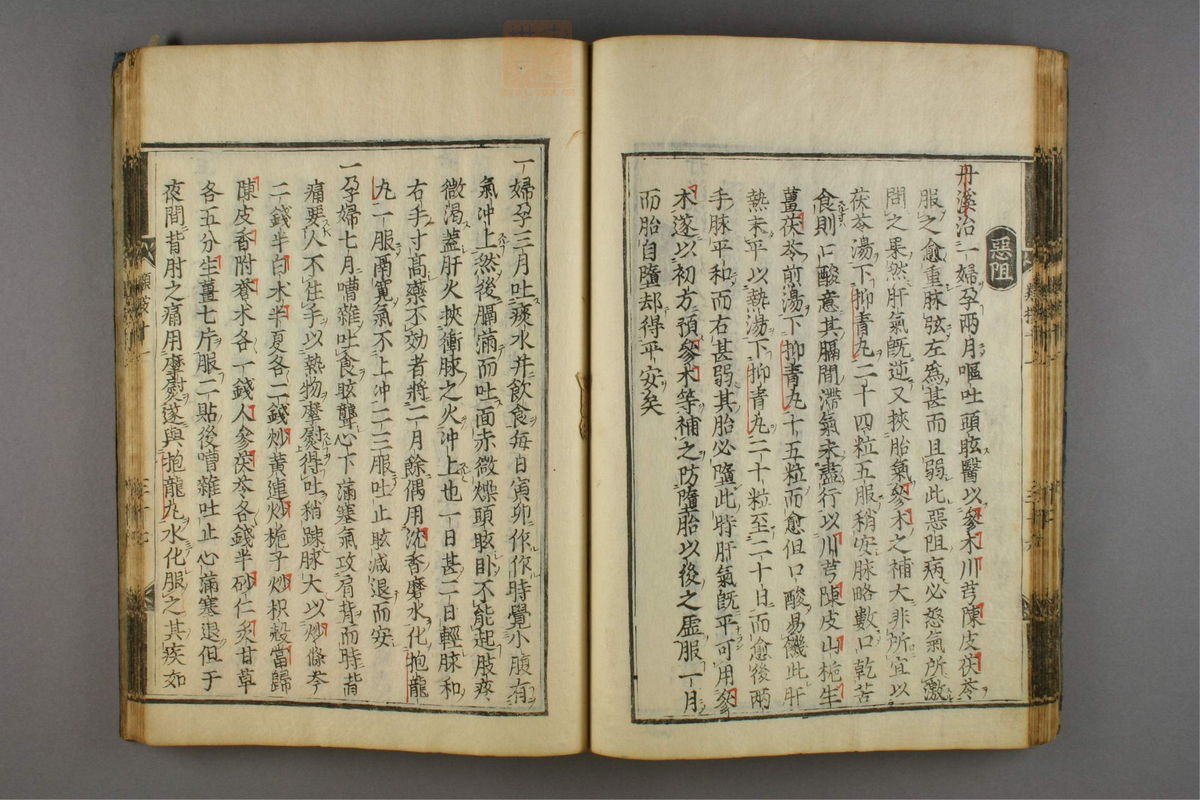 惡阻
丹溪治一婦孕兩月嘔吐頭眩醫以參朮川芎陳皮茯苓
服之愈重脉弦左爲甚而且弱此惡阻病必怒氣所激
問之果然肝氣旣逆又挾胎氣參朮之補大非所宜以
茯苓湯下抑青丸二十四粒五服稍安脉略數口乾苦
食則口酸意其膈間滯氣未盡行以川芎陳皮山梔生
薑茯苓煎湯下抑青丸十五粒而愈但口酸易饑此肝
熱未平以熱湯下抑青丸二十粒至二十日而愈後兩
手脉平和而右甚弱其胎必墮此時肝氣旣平可用參
朮遂以初方預參朮等補之防墮胎以後之虛服一月
而胎自墮却得平安矣
一婦孕三月吐痰水并飲食每日寅卯作作時覺小腹有
氣沖上然後膈滿而吐面赤微燥頭眩卧不能起肢疼
微渴蓋肝火挾衝脉之火沖上也一日甚二日輕脉和
右手寸高藥不効者將二月餘偶用沈香磨水化抱龍
丸一服膈寬氣不上沖二三服吐止眩減退而安
一孕婦七月嘈雜吐食眩聾心下滿塞氣攻肩背兩時皆
痛要人不住手以熱物摩熨得吐稍踈脉大以炒條芩
二錢半白朮半夏各二錢炒黄連炒梔子炒枳殼當歸
陳皮香附蒼朮各一錢人參茯苓各錢半砂仁炙甘草
各五分生薑七片服二貼後嘈雜吐止心滿塞退但于
夜間背肘之痛用摩熨遂與抱龍丸水化服之其疾如